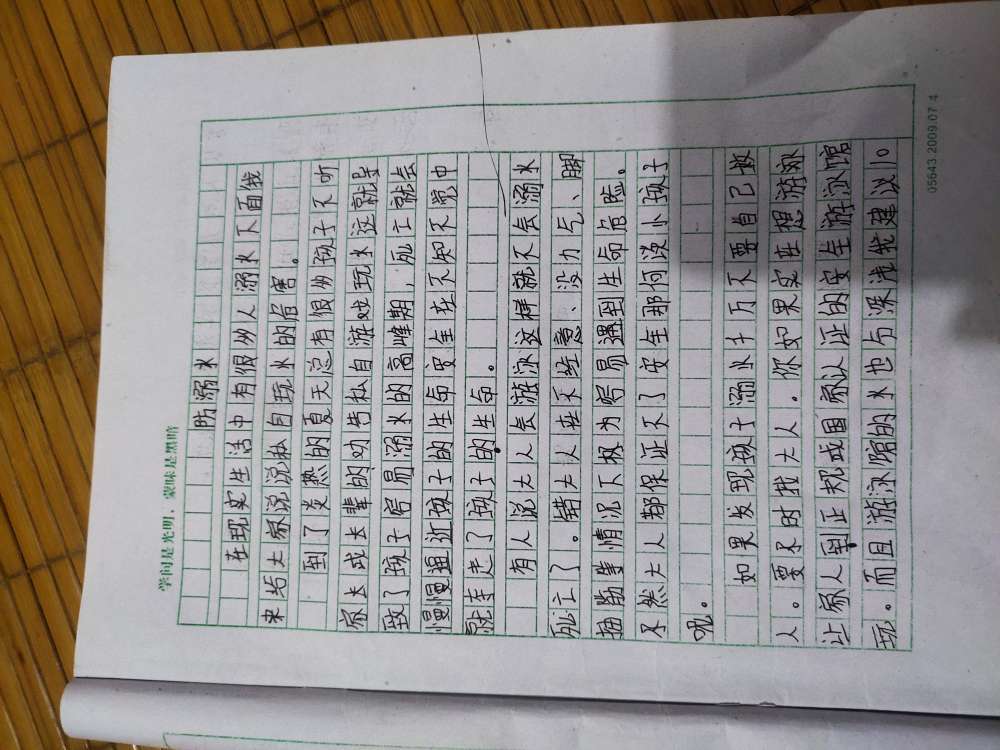 学问是光明，蒙昧是黑暗
防溺水
在现实生活中有很多人溺水下面我
来给大家说说私自玩水的危害。
到了炎热的夏天总有很多孩子不听
家长或长辈的劝告私自游戏玩水这就导
致了孩子容易溺水的高峰期，死亡就会
慢慢逼近孩子的生命安全在不知不觉中
就夺走了孩子的生命。
有人说大人去游泳这样就不会溺水
死亡了。错大人在不经意、没力气、脚
抽筋等情况下极为容易遇到生命危险。
不然大人都保证不了安全那何谈小孩子
呢。
如果发现孩子溺水千万不要自己救
人。要不时找大人。你如果实在想游泳
让家人到正规或国家认证的安全游泳馆
玩。而且游泳馆的水也分深浅我建议10
05643 2009.07.4